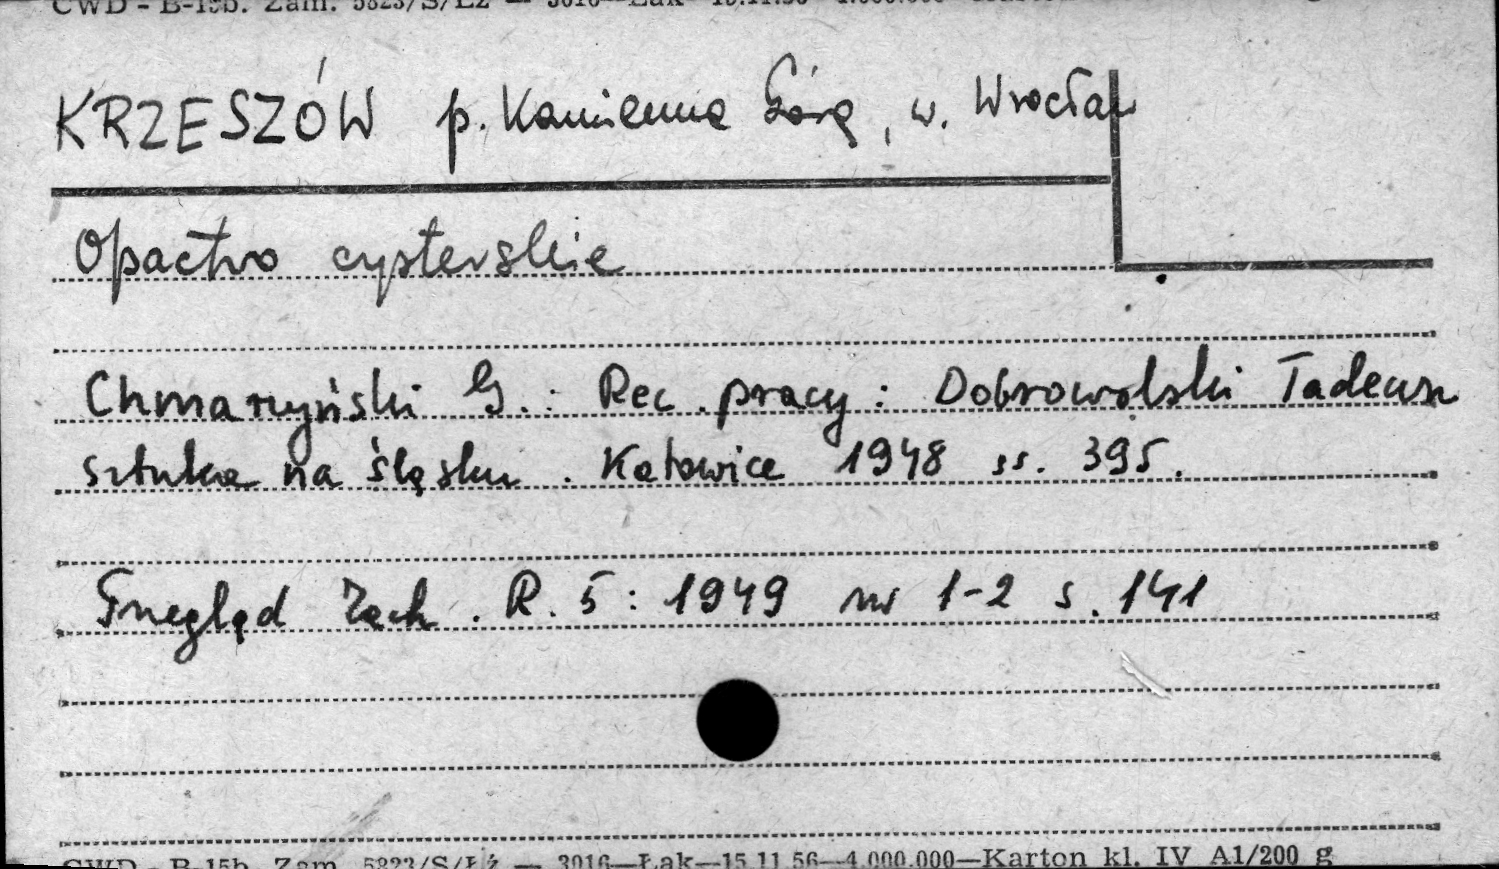 CWD - B-15b. Zam. 5823/S/Łż — 3016—Łak—15.11.56—4.000.000—
KRZESZÓW p. Kamienna Góra, w. Wrocław
Opactwo cysterskie
Chmarzyński G.: Rec. pracy: Dobrowolski Tadeusz
sztuka na śląsku. Katowice 1948 ss. 395.
Przegląd Zach. R. 5: 1949 nr 1-2 s. 141
CWD - B-15b. Zam. 5823/S/Łż — 3016—Łak—15.11.56—4.000.000—Karton kl. IV A1/200 g